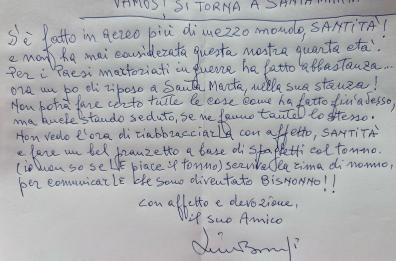 VAMOS! SI TORNA A SANTA
S'è fatto in aereo più di mezzo mondo, SANTITÀ!
e non ha mai considerata questa nostra quarta età.
Per i Paesi martoriati in guerra ha fatto abbastanza...
ora un po di riposo a Santa Marta, nella sua stanza!
Non potrà fare certo tutte le cose come ha fatto fin'adesso,
ma anche stando seduto, se ne fanno tante lo stesso.
Non vedo l'ora di riabbracciarLa con affetto, SANTITÀ
e fare un bel pranzetto a base di spaghetti col tonno.
(io non so se LE piace il tonno) serviva la rima di nonno,
per comunicarLE che sono diventato BISNONNO!!
con affetto e devozione,
il suo Amico